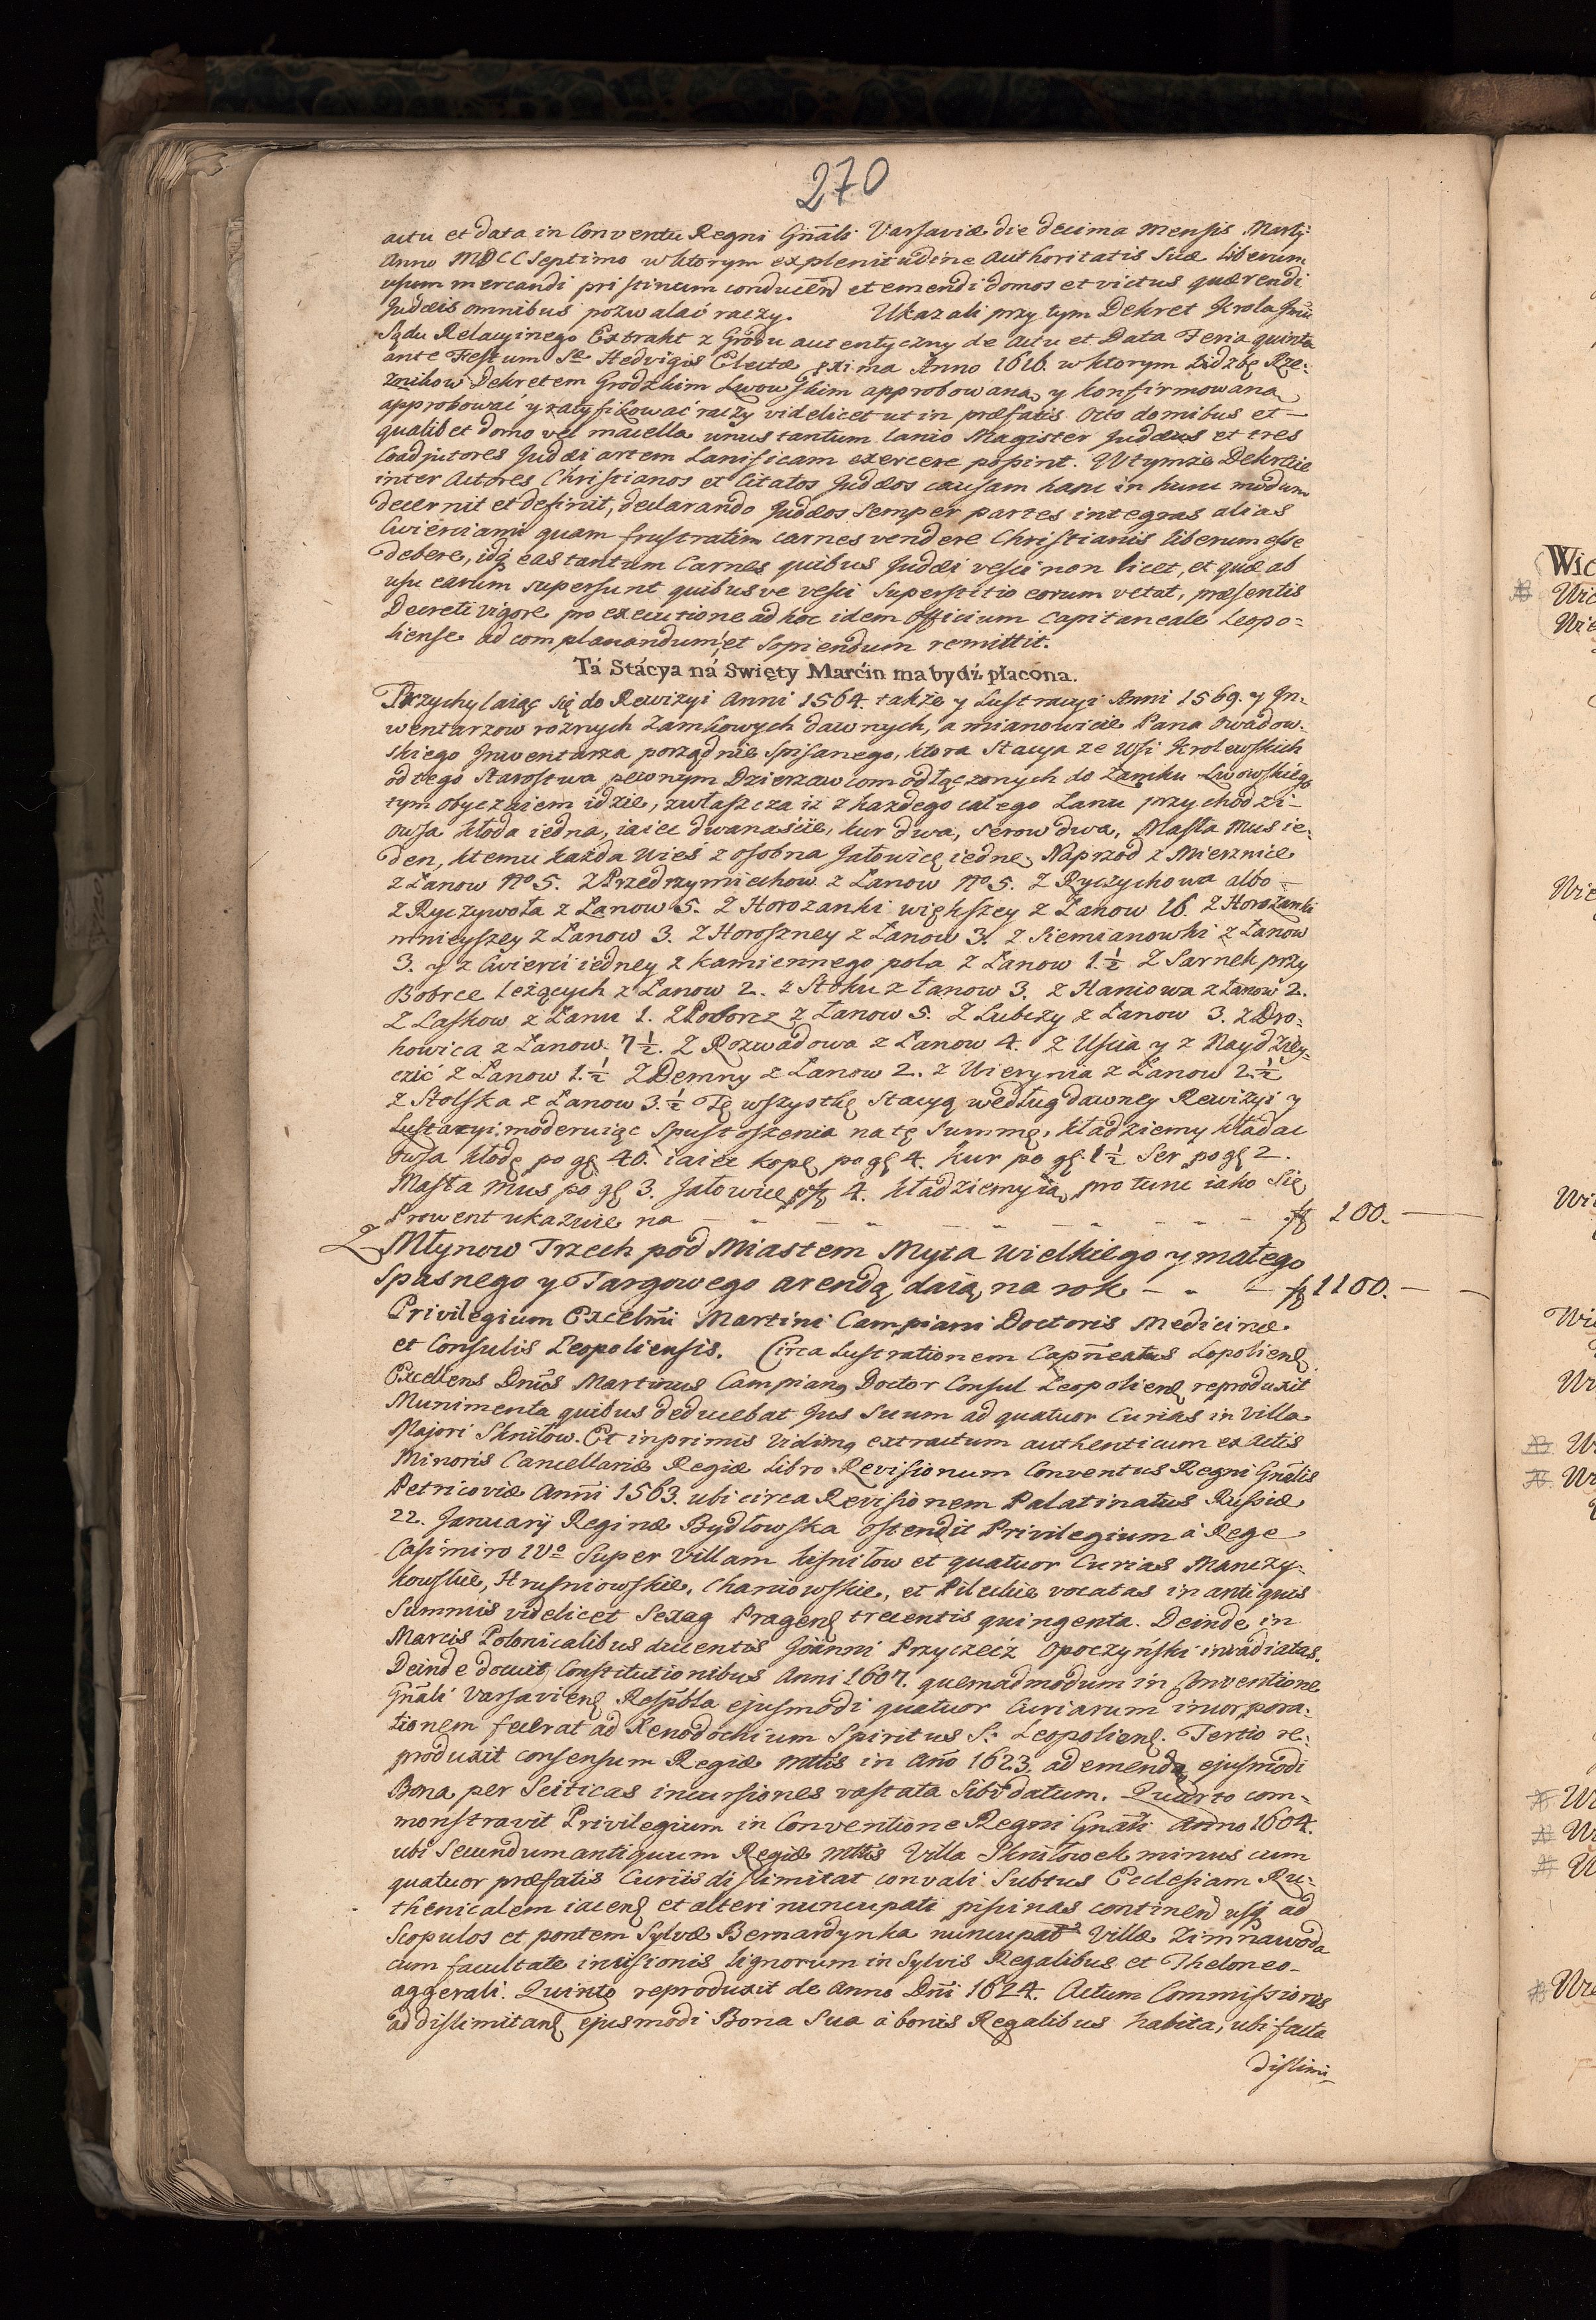 270
actu et data in Conventu Regni Gñali Varsaviæ die decima Mensis Martij
Anno MDCC Septimo w ktorym ex plenitudine Authoritatis Suæ Liberum
usum mercandi pristinum conducend et emendi domos et victus quærendi
Judæis omnibus pozwalać raczy. Ukazali przy tym Dekret Krola Jmći
Sądu Relacyinego Extrakt z Grodu autentyczny de Actu et Data Feria quinta
ante Festum Stæ Hedvigis Electæ Anno 1616. w ktorym Liczbę Rze-
znikow Dekretem Grodzkim Lwowskim approbowaną y konfirmowaną
approbować y ratyfikować raczy videlicet ut in præfatis octo domibus et
qualibet domo vel macella unus tantum lanio Magister Judæus et tres
Coadjutores Judæi artem Lanificam exercere possint. W tymże Dekrecie
inter Actores Christianos et Citatos Judæos causam hanc in hunc modum
decernit et definit, declarando Judæos semper partes integras alias
Cwierciami quam frustratim carnes vendere Christianis liberum esse
debere, idq eas tantum Carnes quibus Judæi vesci non licet, et quæ ab
usu earum supersunt quibusve vesci Superstitio eorum vetat, præsentis
Decreti vigore pro executione ad hoc idem Officium Capitaneale Leopo-
liense ad complanandum et sopiendum remittit.
Tá Stácya ná Swięty Marćin ma bydź płacona.
Przychylaiąc się do Rewizyi Anni 1564. także y Lustracyi Anni 1569. y In-
wentarzow roznych Zamkowych dawnych, a mianowicie Pana Owadow-
skiego Inwentarza porządnie spisanego, ktora Stacya ze Wsi Krolewskich
od tego Starostwa pewnym Dzierzawcom odłączonych do Zamku Lwowskiego
tym obyczaiem idzie, zwłaszcza iz z każdego całego Łanu przychodzi
owsa kłoda iedna, iaiec dwanascie, kur dwa, serow dwa, Masła Mus ie-
den, ktemu każda wieś z osobna Jałowicę iednę. Naprzod z Mierznice
z Łanow No 5. Z Przedrzymiechow z Łanow No 5. Z Ryczychowa albo
z Ryczywoła z Łanow 5. Z Horozanki większey z Łanow 16. Z Horożanki
mnieyszey z Łanow 3. Z Horoszney z Łanow 3. z Siemianowki z Łanow
3. y z Cwierci iedney z kamiennego pola z Łanow 1.½ Z Sarnek przy
Bobrce leżących z Łanow 2. z Stoku z Łanow 3. z Haniowa z Łanow 2.
Z Laskow z Łanu 1. Z Podborcz z Łanow 5. Z Lubczy z Łanow 3. z Dro-
howica z Łanow 7½. Z Rozwadowa z Łanow 4. z Uscia y z Nayd
czić z Łanow 1.½ Z Demny z Łanow 2. z Wierynia z Łanow 2.½
z Stolska z Łanow 3.½ Tę wszystkę Stacyą według dawney Rewizyi y
Lustracyi moderuiąc spustoszenia na tę Summę, kładziemy kładąc
owsa kłodę po gł 40. iaiec kopę po gł 4. kur po gł. 1½ Ser po gł 2.
Masła Mus po gł 3. Jałowicę 4. kładziemy ią pro tunc iako się
Prowent ukazuie na - - - - - - - - - fl 100.
Z Młynow Trzech pod Miastem Myta wielkiego y małego
spasnego y Targowego arendą daią na rok - - - fl 1100.
Privilegium Excelmi Martini Campiani Doctoris Medicinæ
et Consulis Leopoliensis. Circa Lustrationem Capñeatus Lopolien
Excellens Dnus Martinus Campiang Doctor Consul Leopolien reproduxit
Munimenta quibus deducebat Jus Suum ad quatuor Curias in Villa
Majori Sknilow. Et inprimis Viding extractum authenticum ex Actis
Minoris Cancellariæ Regiæ Libro Revisionum Conventus Regni Gnelis
Petricoviæ Anni 1563. ubi circa Revisionem Palatinatus Russiæ
22. Januarij Reginæ Bydłowska ostendit Privilegium à Rege
Casimiro IVo Super Villam kisnilow et quatuor Curias Manczy-
kowskie, Hrusniowskie, Chaniowskie, et Pileckie vocatas in antiquis
Summis videlicet Sexag Pragen trecentis quingenta. Deinde in
Marcis Polonicalibus ducentis Joanni Przyczecz Opoczyński invadiatas.
Deinde docuit Constitutionibus Anni 1607. quemadmodum in Conventione
Gñali Varsavien Respbla ejusmodi quatuor Curiarum incorpora-
tionem fecerat ad Xenodochium Spiritus S: Leopolien. Tertio re-
produxit consensum Regiæ Mttis in Año 1623. ad emenda ejusmodi
Bona per Sciticas incursiones vastata Sibi datum. Quarto com-
monstravit Privilegium in Conventione Regni Gnali Anno 1604.
ubi Secundum antiquum Regiæ Mttis Villa Sknilowek minus cum
quatuor præfatis Curiis dislimitat convali Subtus Ecclesiam Ru-
thenicalem iacen et alteri nuncupati piscinas continen usq ad
Scopulos et pontem Sylvæ Bernardynka nuncupat Villæ Zimnawoda
cum facultate incisionis lignorum in Sylvis Regalibus et Theloneo
aggerali. Quinto reproduxit de Anno Dñi 1624. Actum Commissionis
ad dislimitan ejusmodi Bona Sua à bonis Regalibus habita, ubi facta
dislimi-